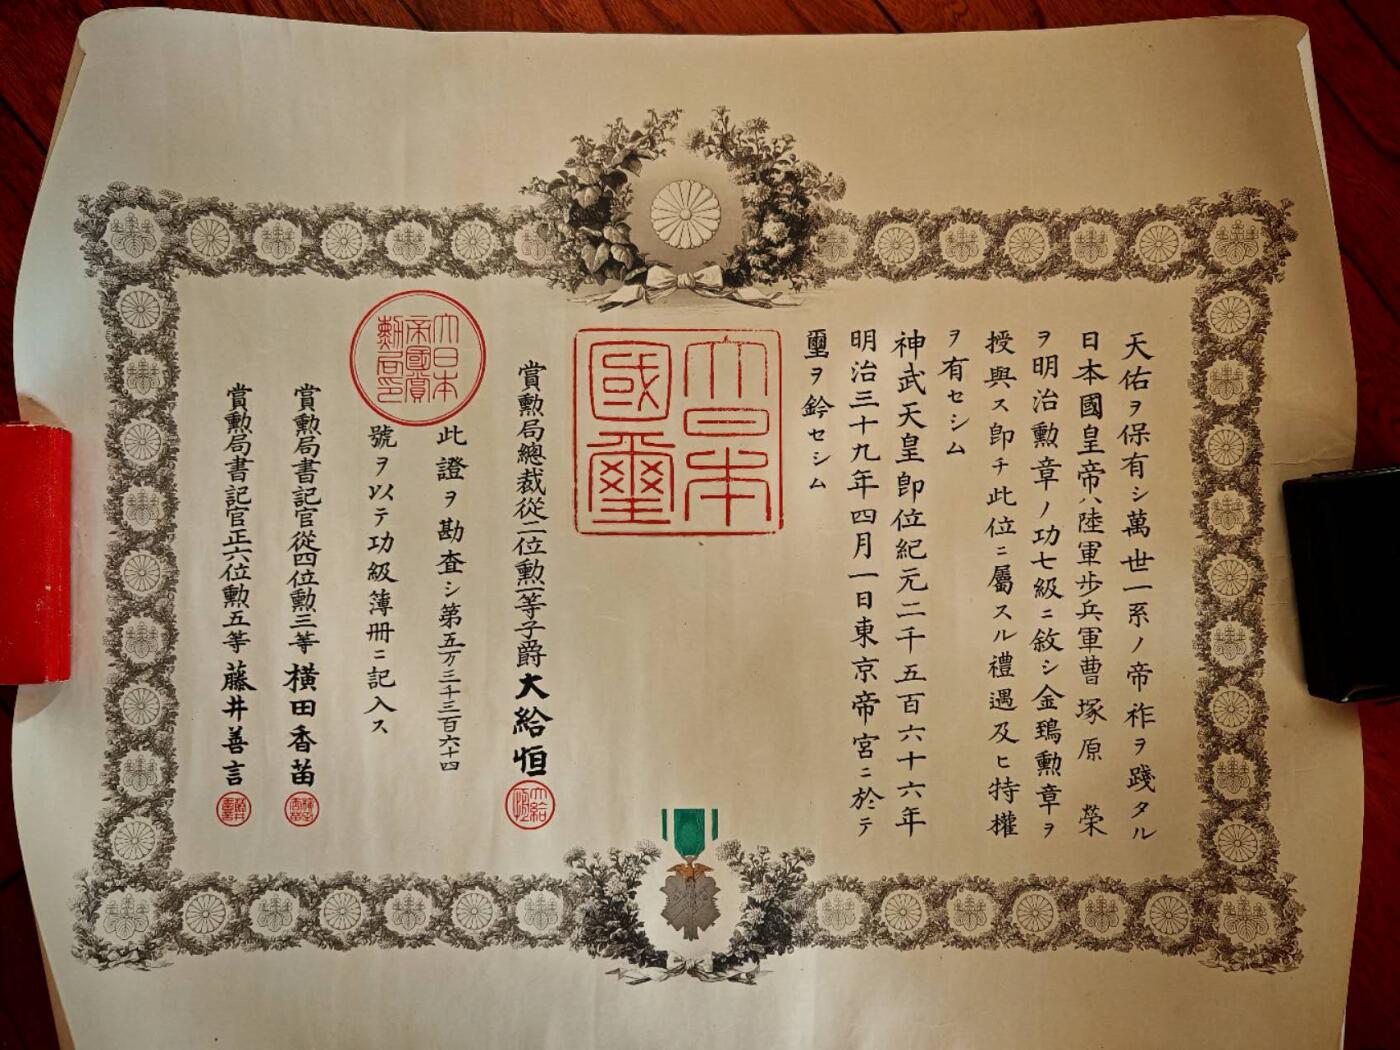 天佑ヲ保有シ萬世一系ノ帝祚ヲ踐タル
日本國皇帝ハ陸軍歩兵軍曹塚原　榮
ヲ明治勲章ノ功七級ニ敘シ金鵄勲章ヲ
授與ス卽チ此位ニ屬スル禮遇及ヒ特權
ヲ有セシム
神武天皇卽位紀元二千五百六十六年
明治三十九年四月一日東京帝宮ニ於テ
璽ヲ鈐セシム
大日本國璽
賞勲局總裁從二位勲一等子爵大給恒
大給恒
大日本帝國賞勲局印
此證ヲ勘査シ第五万三千三百六十四
號ヲ以テ功級簿冊ニ記入ス
賞勲局書記官從四位勲三等橫田香苗
賞勲局書記官正六位勲五等藤井善言